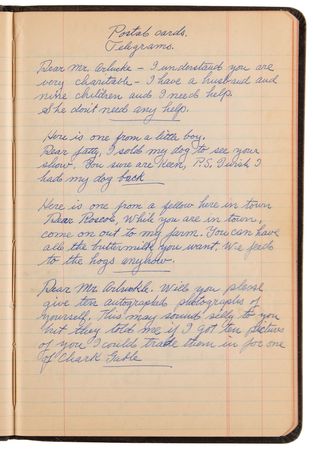 Postal cards.
Telegrams.
Dear Mr. Arbuckle - I understand you are
very charitable - I have a husband and
nine children and I need help.
She don't need any help.
Here is one from a little boy.
Dear fatty, I sold my dog to see your
show. You sure are keen, P.S. I wish I
had my dog back
Here is one from a fellow here in town
Dear Roscoe, While you are in town,
come on out to my farm. You can have
all the buttermilk you want. We feed
to the hogs anyhow.
Dear Mr. Arbuckle. Will you please
give ten autographed photographs of
yourself. This may sound silly to you
but they told me if I got ten pictures
of you I could trade them in for one
of Clark Gable